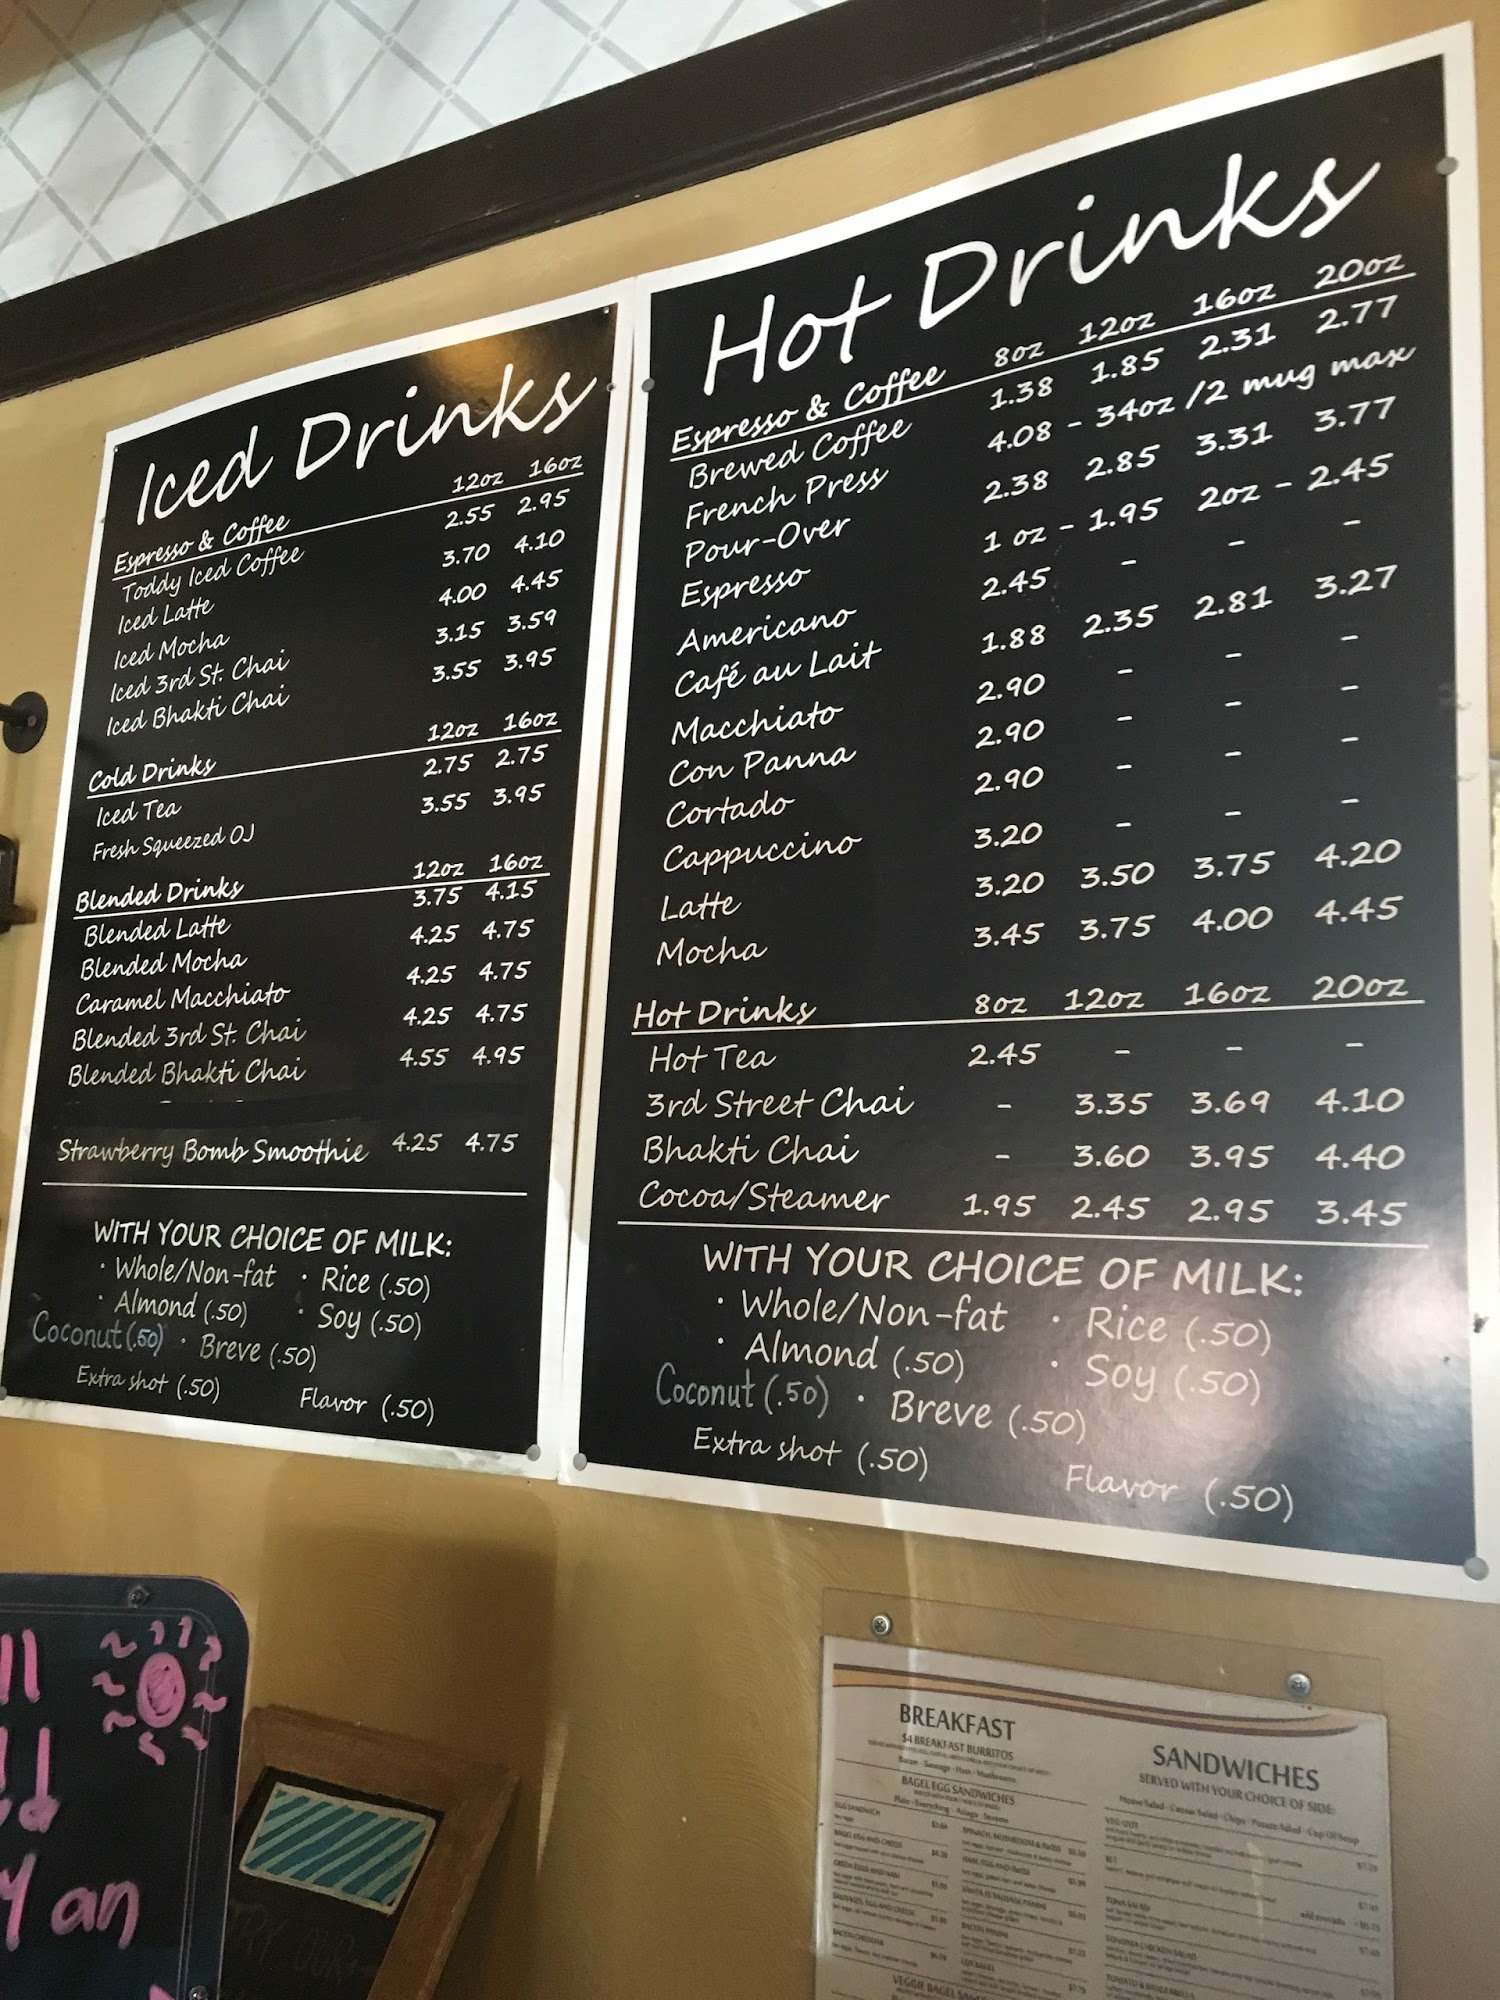 Iced Drinks
Espresso & Coffee 12oz 16oz
Toddy Iced Coffee 2.55 2.95
Iced Latte 3.70 4.10
Iced Mocha 4.00 4.45
Iced 3rd St. Chai 3.15 3.59
Iced Bhakti Chai 3.55 3.95
Cold Drinks 12oz 16oz
Iced Tea 2.75 2.75
Fresh Squeezed OJ 3.55 3.95
Blended Drinks 12oz 16oz
Blended Latte 3.75 4.15
Blended Mocha 4.25 4.75
Caramel Macchiato 4.25 4.75
Blended 3rd St. Chai 4.25 4.75
Blended Bhakti Chai 4.55 4.95
Strawberry Bomb Smoothie 4.25 4.75
WITH YOUR CHOICE OF MILK:
· Whole/Non-fat · Rice (.50)
· Almond (.50) · Soy (.50)
Coconut (.50) · Breve (.50)
Extra shot (.50) Flavor (.50)
Hot Drinks
Espresso & Coffee 8oz 12oz 16oz 20oz
Brewed Coffee 1.38 1.85 2.31 2.77
French Press 4.08 - 34oz /2 mug max
Pour-Over 2.38 2.85 3.31 3.77
Espresso 1 oz - 1.95 2oz - 2.45
Americano 2.45 - - -
Café au Lait 1.88 2.35 2.81 3.27
Macchiato 2.90 - - -
Con Panna 2.90 - - -
Cortado 2.90 - - -
Cappuccino 3.20 - - -
Latte 3.20 3.50 3.75 4.20
Mocha 3.45 3.75 4.00 4.45
Hot Drinks 8oz 12oz 16oz 20oz
Hot Tea 2.45 - - -
3rd Street Chai - 3.35 3.69 4.10
Bhakti Chai - 3.60 3.95 4.40
Cocoa/Steamer 1.95 2.45 2.95 3.45
WITH YOUR CHOICE OF MILK:
· Whole/Non-fat · Rice (.50)
· Almond (.50) · Soy (.50)
Coconut (.50) · Breve (.50)
Extra shot (.50) Flavor (.50)
an
BREAKFAST
$4 BREAKFAST BURRITOS
Bacon · Sausage · Ham · Mushrooms
BAGEL EGG SANDWICHES
Plain · Everything · Asiago · Sesame
EGG SANDWICH
BAGEL EGG AND CHEESE
GREEN EGGS AND HAM
SAUSAGE, EGG AND CHEESE
BACON CHEDDAR
SPINACH, MUSHROOM & SWISS
HAM, EGG AND SWISS
SANTA FE SAUSAGE PANINI
BACON PANINI
LOX BAGEL
SANDWICHES
SERVED WITH YOUR CHOICE OF SIDE:
House Salad · Caesar Salad · Chips · Potato Salad · Cup Of Soup
VEG OUT
BLT
TUNA SALAD
SONOMA CHICKEN SALAD